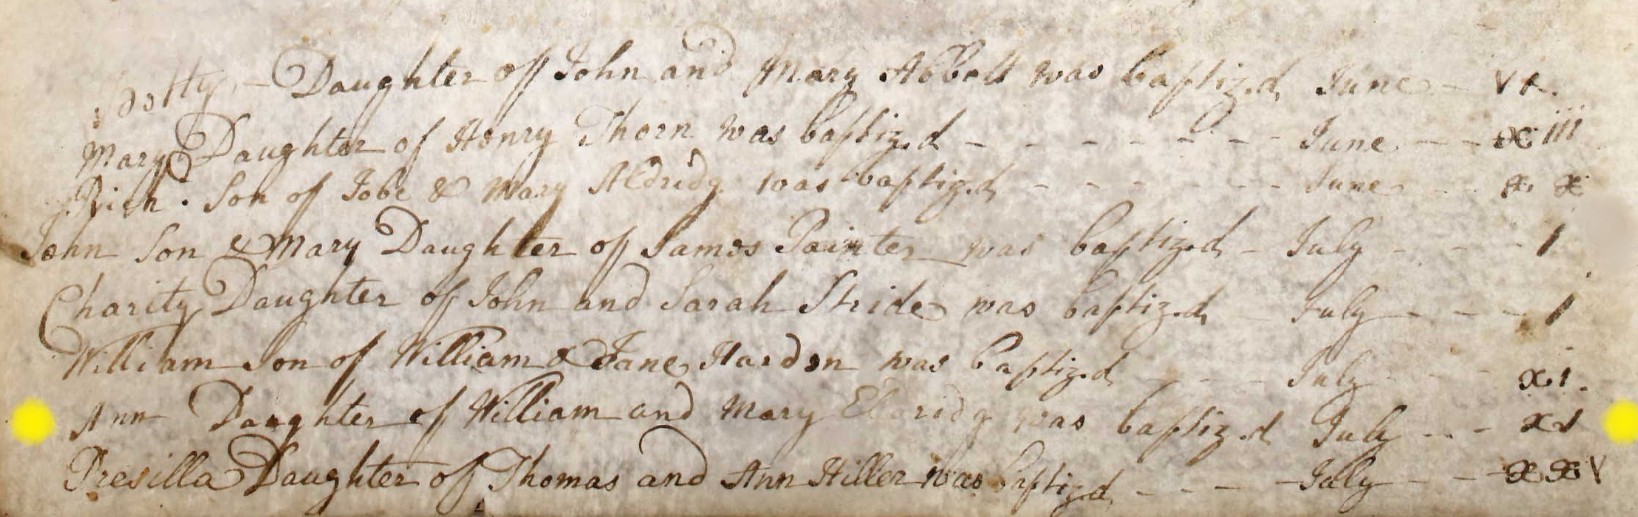 Daughter of John and Mary Abbott was baptized June - vi.
Mary Daughter of Henry Thorn was baptized - - - - - - - June - - - xiii
Rich. Son of Jobe & Mary Aldridg was baptized - - - - - - - June - - x x
John Son & Mary Daughter of James Painter was baptized - July - - - 1
Charity Daughter of John and Sarah Stride was baptized - July - - - - 1
William Son of William & Jane Hardon was baptized - - - - July - - - xi.
Ann Daughter of William and Mary Eldridg was baptized July - - - xi
Presilla Daughter of Thomas and Ann Hiller was baptizd - - - - July - - - x x v